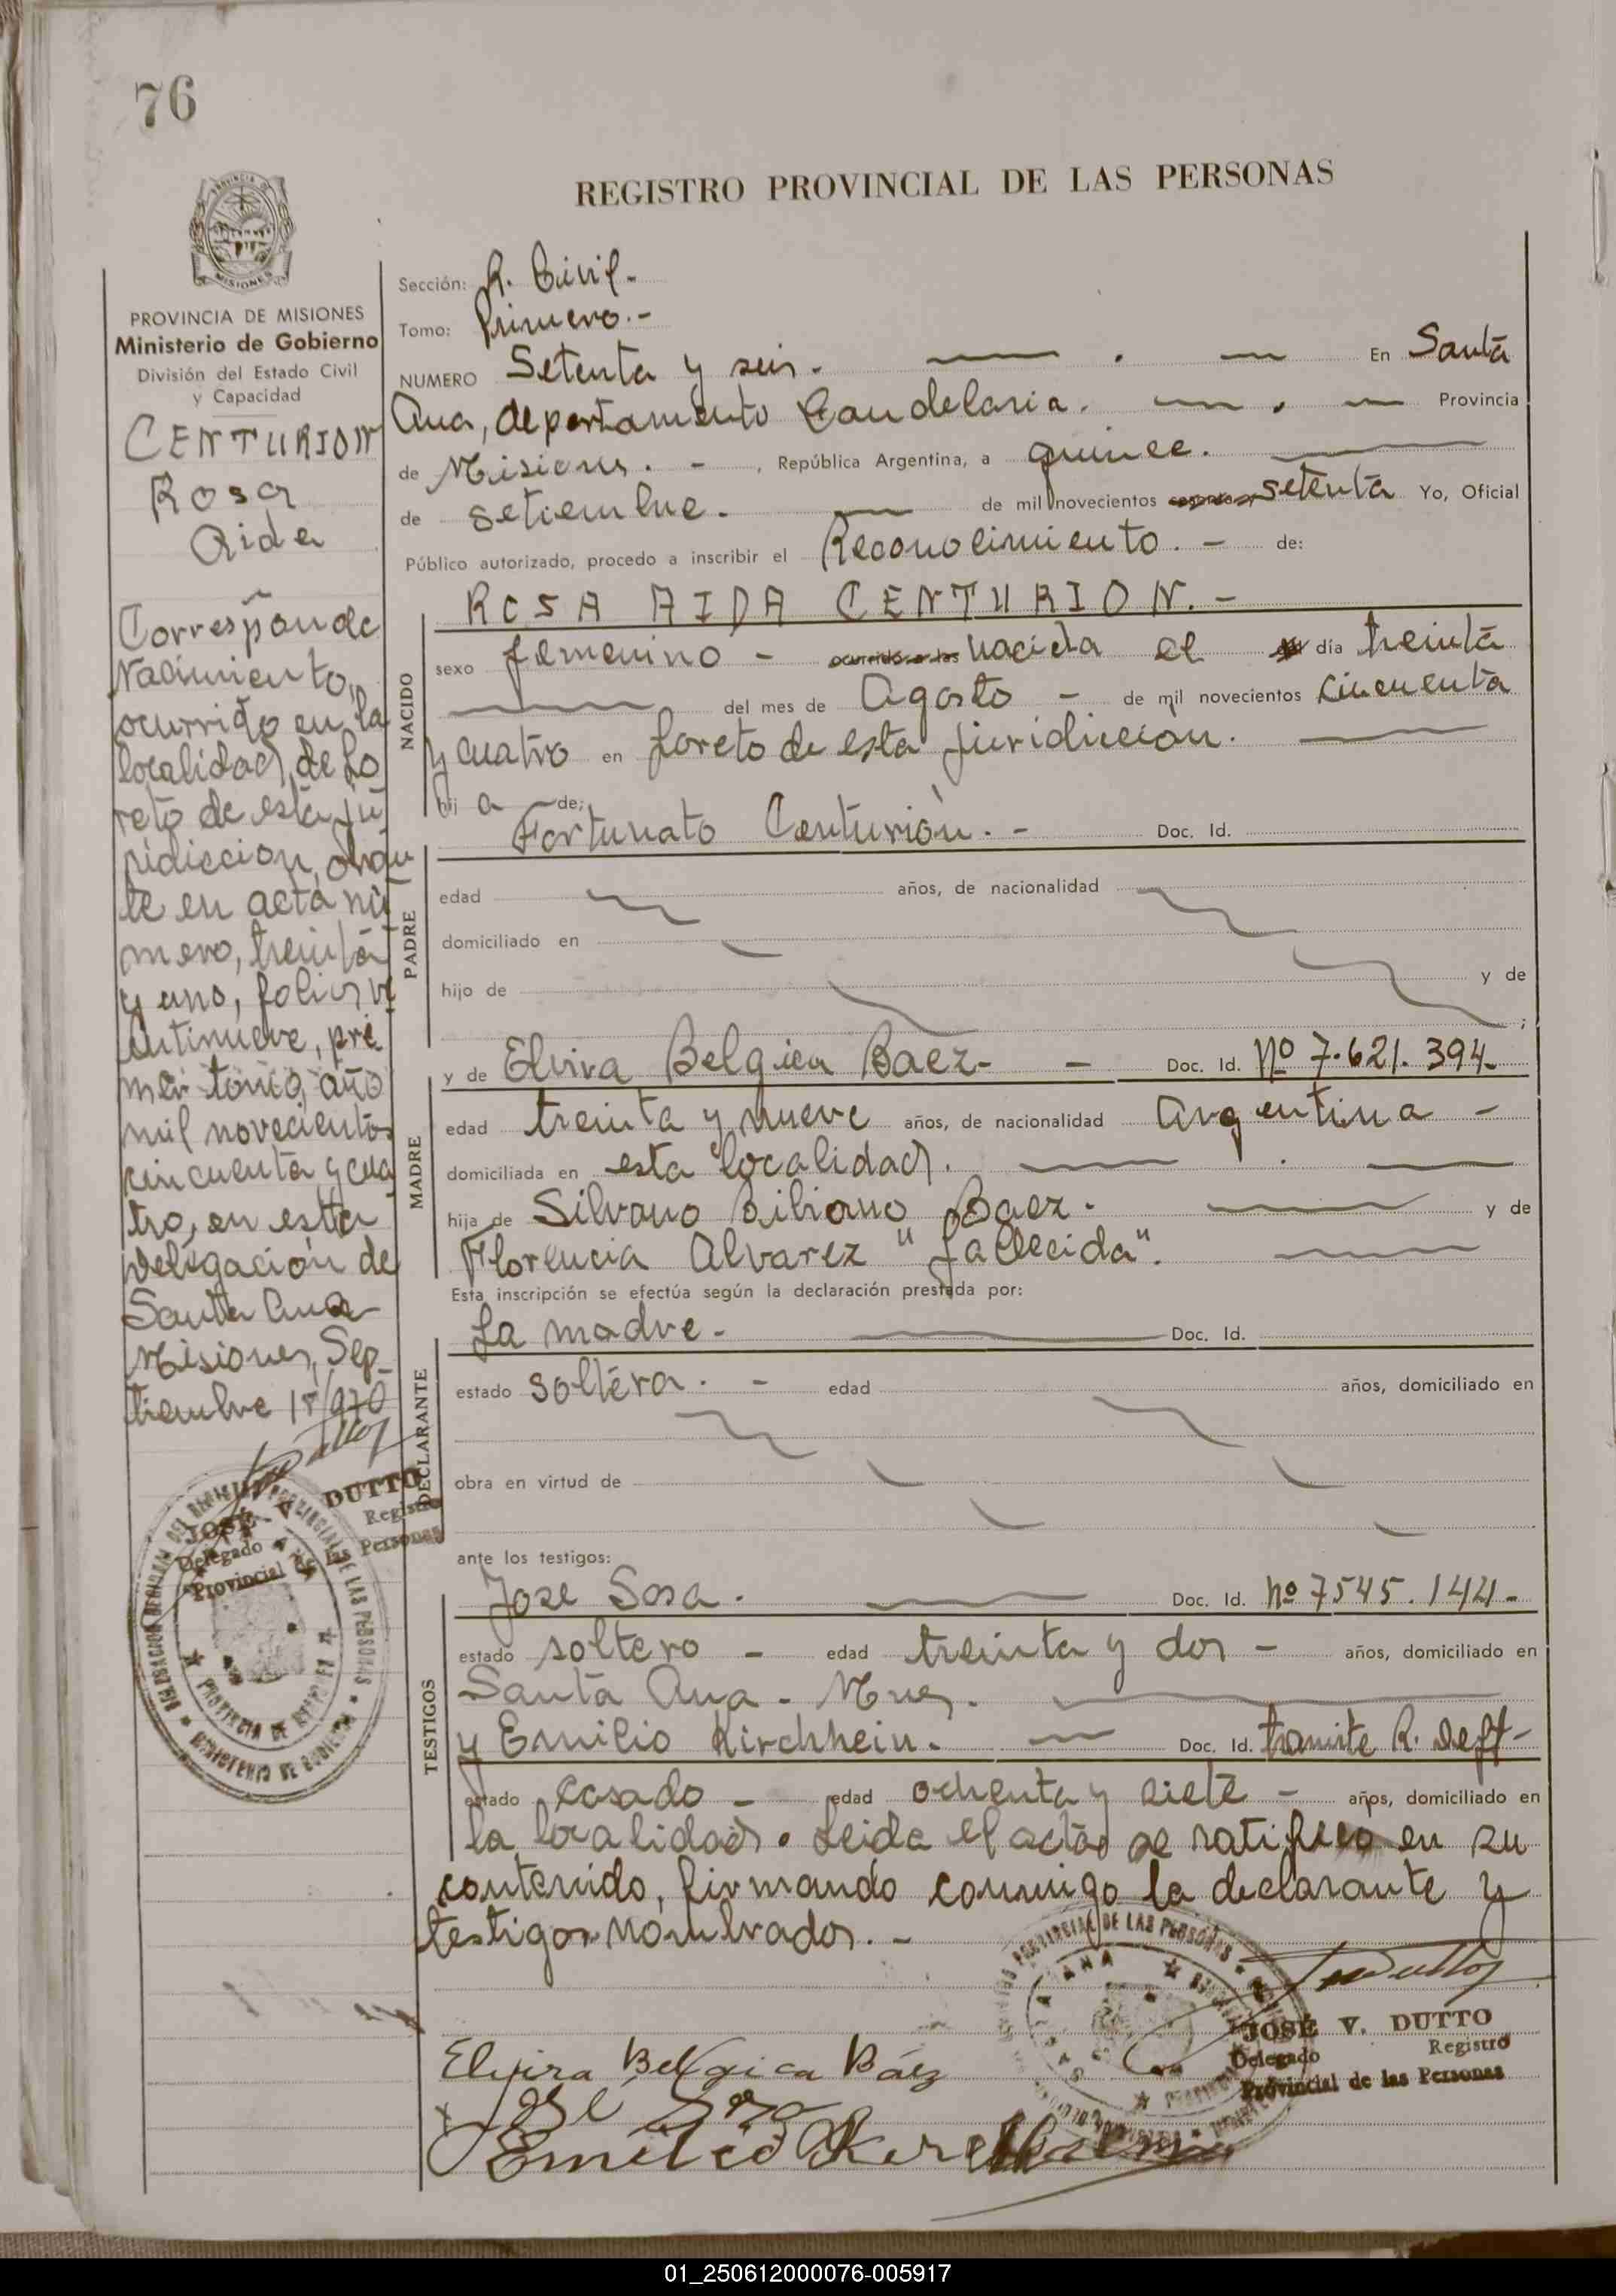 76
REGISTRO PROVINCIAL DE LAS PERSONAS
PROVINCIA DE MISIONES
Ministerio de Gobierno
División del Estado Civil
y Capacidad
CENTURION
Rosa
Aida
Corresponde
Nacimiento,
ocurrido en la
localidad, de Lo
reto de esta ju
ridiccion, obran
te en acta nú
mero, treinta
y uno, folios ve
intinueve, pri
mer tomo, año
mil novecientos
cincuenta y cua
tro, en esta
Delegación de
Santa Ana
Misiones, Sep
tiembre 15/970
JOSÉ V. DUTTO
Delegado Registro
Provincial de las Personas
Sección: R. Civil.-
Tomo: Primero.-
NUMERO Setenta y seis. En Santa
Ana, departamento Candelaria. Provincia
de Misiones. - , República Argentina, a quince.
de setiembre. de mil novecientos setenta Yo, Oficial
Público autorizado, procedo a inscribir el Reconocimiento. - de:
ROSA AIDA CENTURION.-
NACIDO
sexo femenino - ocurrido a las nacida el día treinta
del mes de Agosto - de mil novecientos cincuenta
y cuatro en Loreto de esta juridiccion.
hij a de;
Fortunato Centurión. - Doc. Id.
PADRE
edad años, de nacionalidad
domiciliado en
hijo de y de
;
y de Elvira Belgica Baez- - Doc. Id. Nº 7.621.394-
MADRE
edad treinta y nueve años, de nacionalidad Argentina -
domiciliada en esta localidad.
hija de Silvano Bibiano Baez. y de
Florencia Alvarez "fallecida".
Esta inscripción se efectúa según la declaración prestada por:
La madre- Doc. Id.
DECLARANTE
estado soltera. - edad años, domiciliado en
obra en virtud de
ante los testigos:
Jose Sosa. Doc. Id. Nº 7545.144-
TESTIGOS
estado soltero - edad treinta y dos - años, domiciliado en
Santa Ana - Mnes.
y Emilio Kirchhein. Doc. Id. tramite R.
estado casado - edad ochenta y siete - años, domiciliado en
la localidad. Leida el acta se ratifica en su
contenido, firmando conmigo la declarante y
testigos nombrados.-
JOSÉ V. DUTTO
Delegado Registro
Provincial de las Personas
Elvira Belgica Báez
José Sosa
Emilio
01_250612000076-005917